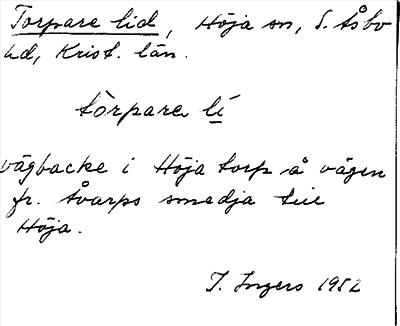 Torpare lid, Höja sn, S. Åsbo
hd, Krist. län.
tòrpare lí
vägbacke i Höja torp å vägen
fr. Åvarps smedja till
Höja.
I. Ingers 1952